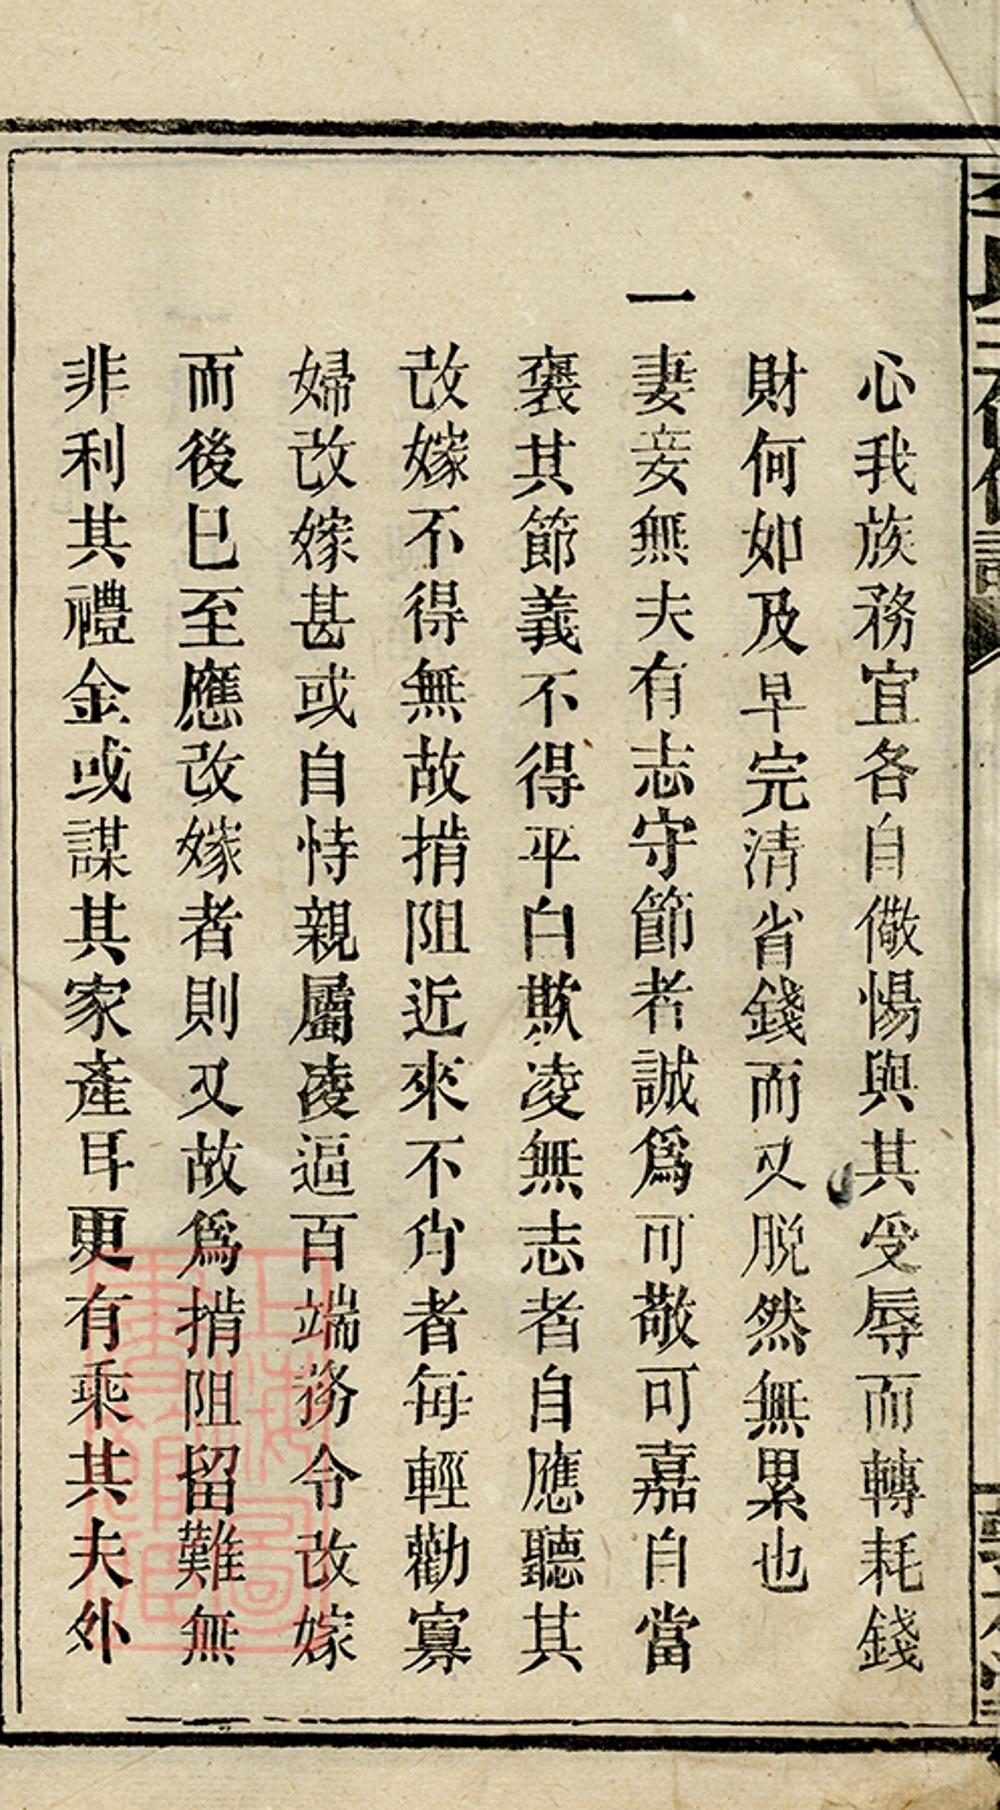 心我族務宜各自儆惕與其受辱而轉耗錢
財何如及早完清省錢而又脫然無累也
一妻妾無夫有志守節者誠爲可敬可嘉自當
褒其節義不得平白欺凌無志者自應聽其
改嫁不得無故掯阻近來不肖者每輕勸寡
婦改嫁甚或自恃親屬凌逼百端務令改嫁
而後已至應改嫁者則又故爲掯阻留難無
非利其禮金或謀其家產耳更有乘其夫外
上海圖書館藏